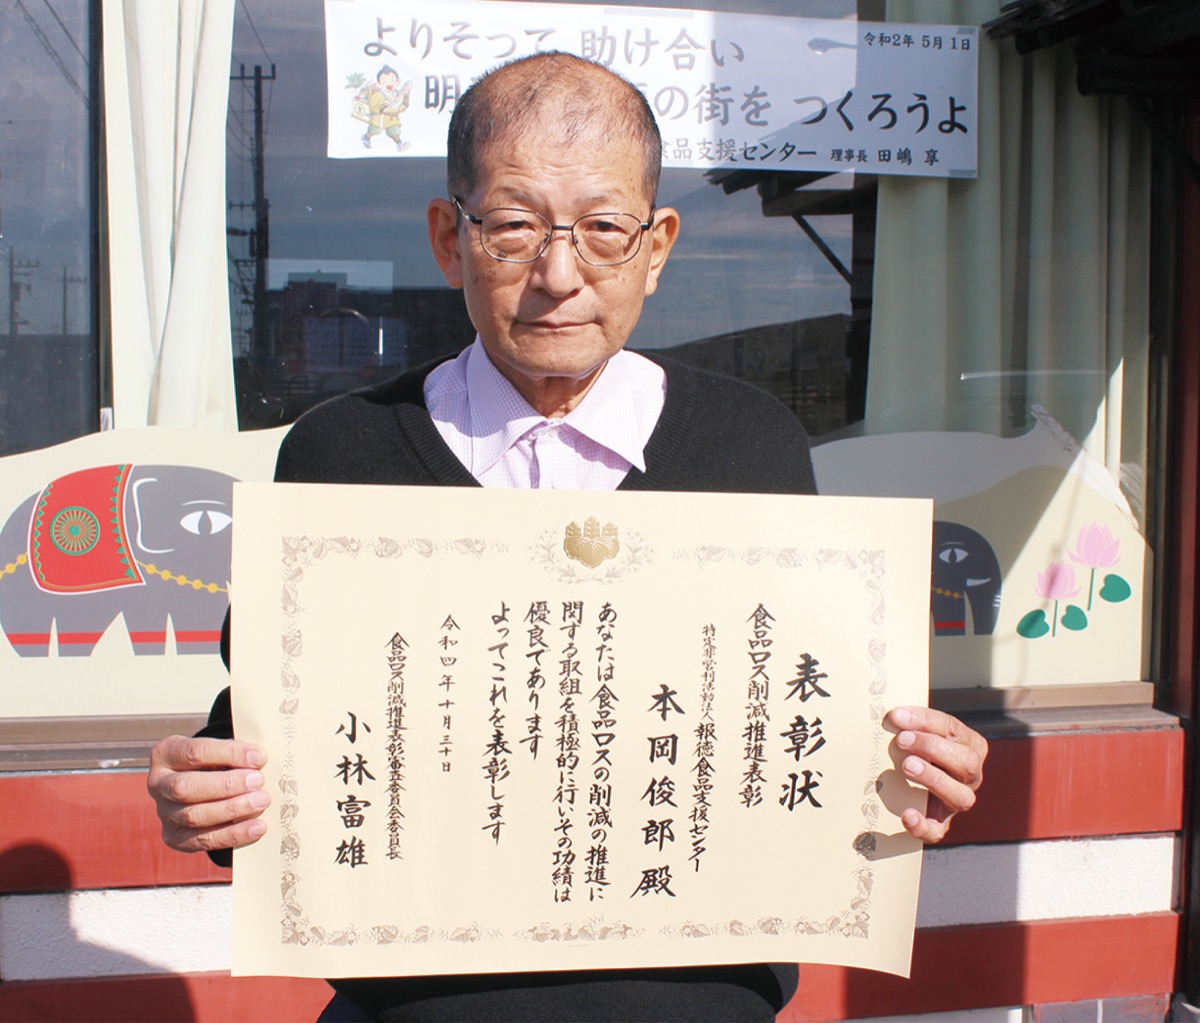 よりそって 助け合い
令和2年 5月1日
明
の街を つくろうよ
食品支援センター 理事長 田嶋 享
表彰状
食品ロス削減推進表彰
特定非営利活動法人 報徳食品支援センター
本岡俊郎殿
あなたは食品ロスの削減の推進に
関する取組を積極的に行いその功績は
優良であります
よってこれを表彰します
令和四年十月三十日
食品ロス削減推進表彰審査委員会委員長
小林富雄